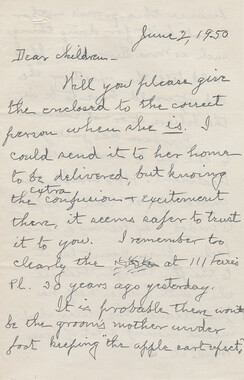 June 2, 1950
Dear Children -
Will you please give
the enclosed to the correct
person when she is. I
could send it to her home
to be delivered, but knowing
the extra confusion + excitement
there, it seems safer to trust
it to you. I remember to
clearly the at 111
Pl. 20 years ago yesterday.
It is probable there won't
be the groom's mother under
foot keeping "the apple cart upset"